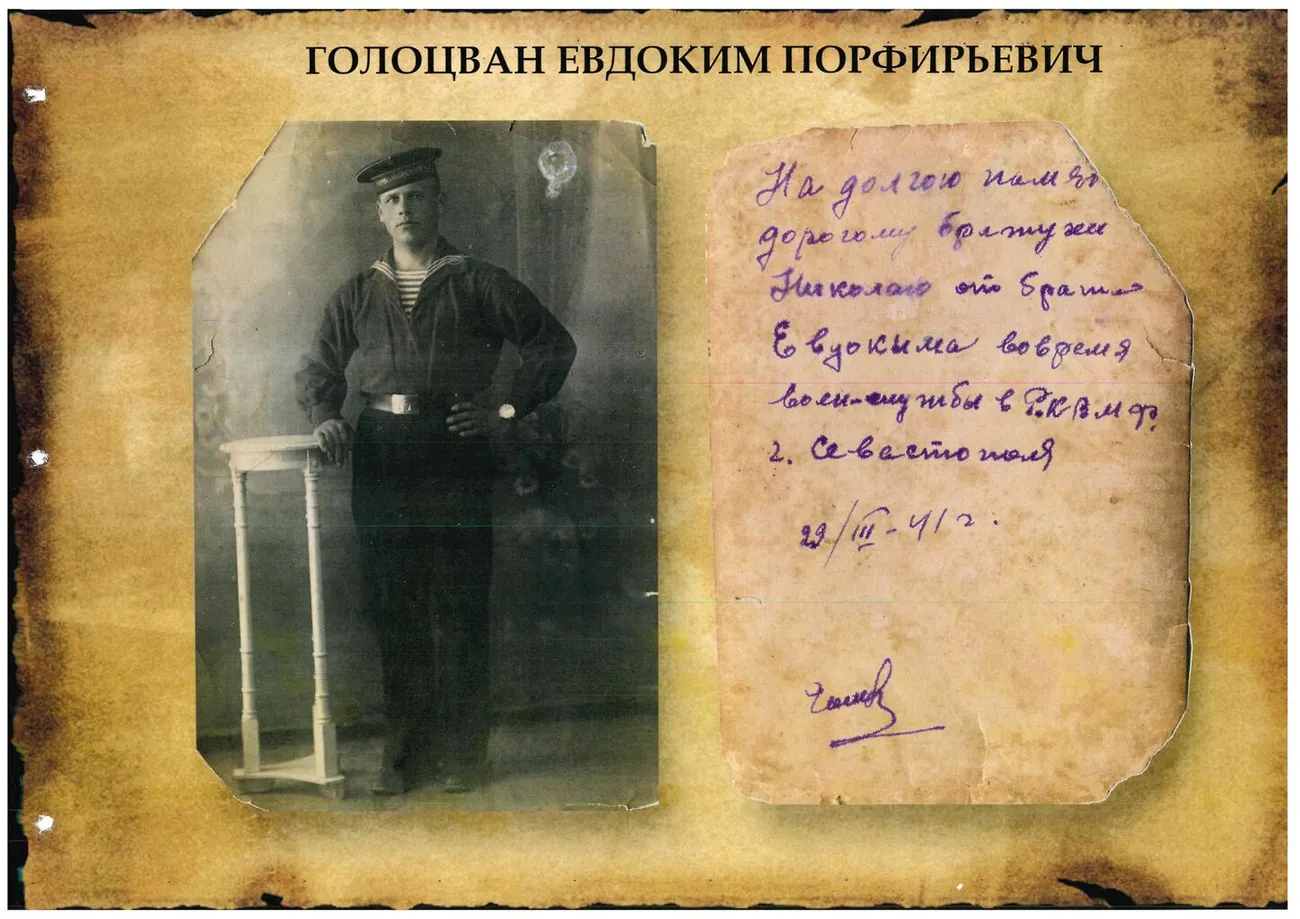 ГОЛОЦВАН ЕВДОКИМ ПОРФИРЬЕВИЧ
На долгою память
дорогому братухи
Николаю от брата
Евдокыма вовремя
воен-службы в Р.К.В.М.Ф.
г. Севастополя
29/III-41 г.